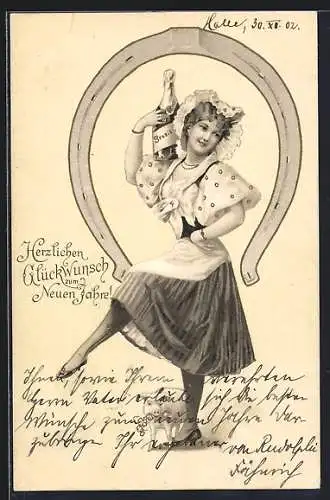 Halle, 30. XII. 02.
Herzlichen
Glückwunsch
zum
Neuen Jahre!
Ihnen, sowie Ihrem verehrten
Herrn Vater erlaubt sich die besten
Wünsche zum neuen Jahre dar-
zubringen Ihr
von Rudolphi
Fähnrich